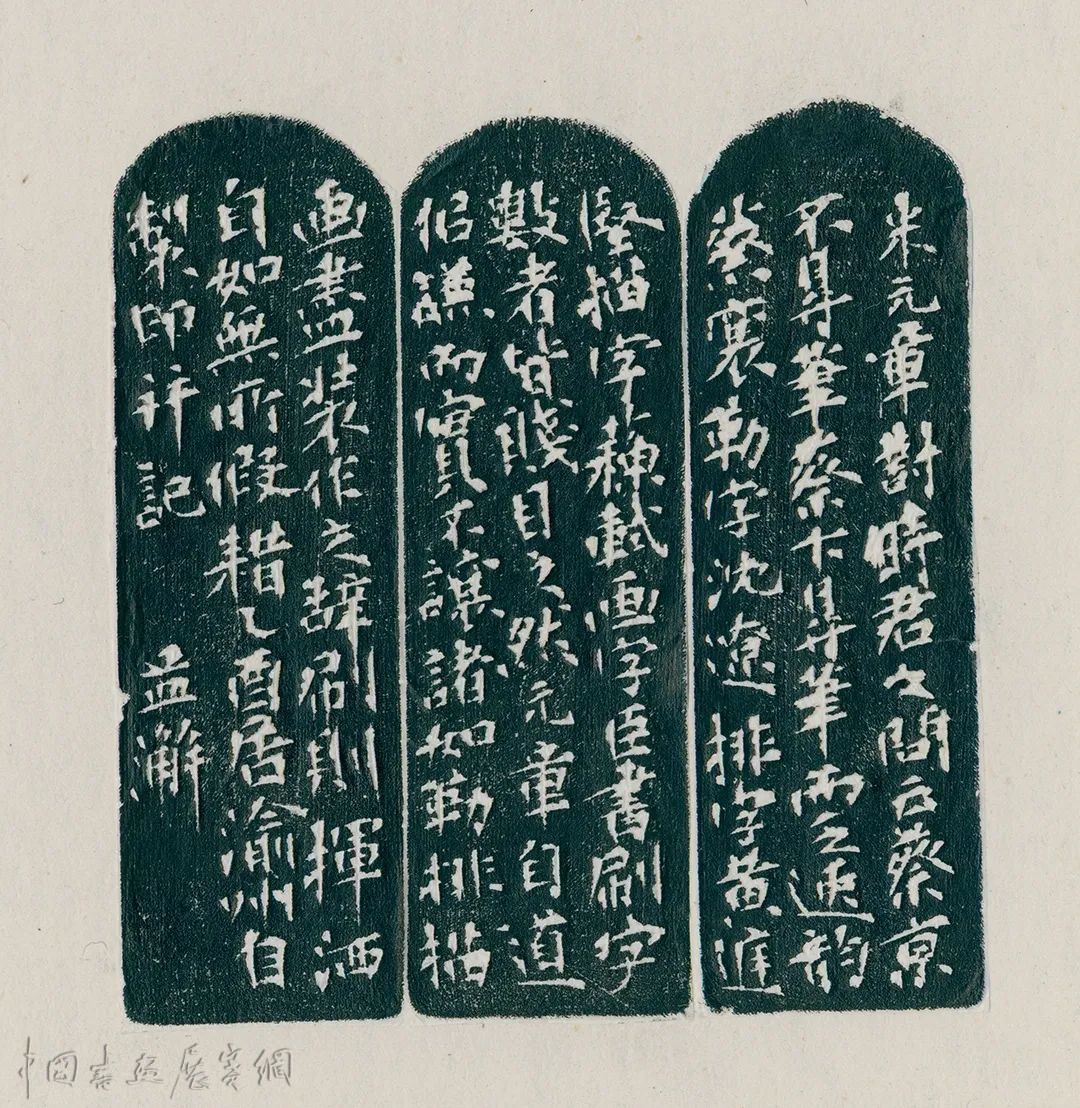 米元章對時君之問云蔡京
不得筆蔡卞得筆而乏逸韵
蔡襄勒字沈遼排字黄庭
堅描字蘇軾画字臣書刷字
數者皆賤目之然元章自道
似謙而實不讓諸如勒排描
画装作之辭刷則揮洒
自如無所假耤乙酉居渝州自
製印并記 孟澥
中國書法展賽網